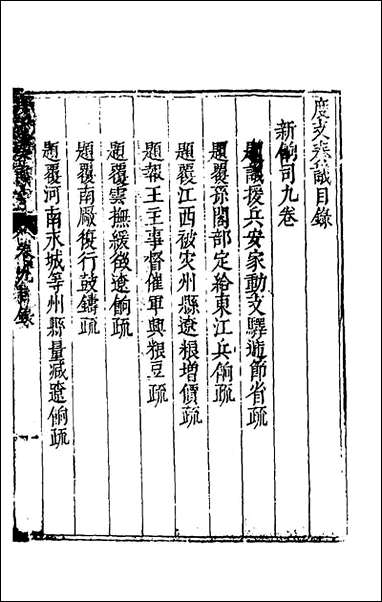 度支奏議目錄
新餉司九卷
題議援兵安家動支驛逓節省疏
題覆孫閣部定給東江兵餉疏
題覆江西被灾州縣遼粮增價疏
題報王主事督催軍興粮豆疏
題覆雲撫緩徵遼餉疏
題覆南厰復行鼓鑄疏
題覆河南永城等州縣量減遼餉疏